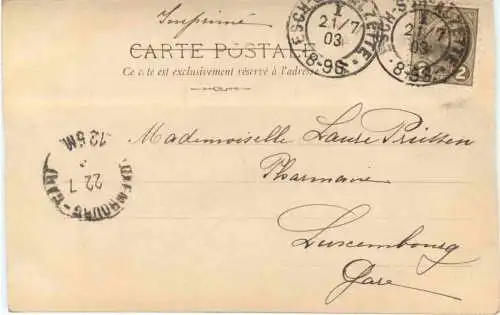 Imprimé
ESCH-S-ALZETTE
1
21/7
03
8-9S
ESCH-S-ALZETTE
1
21/7
03
8-9S
2
2
CARTE POSTALE
Ce côté est exclusivement réservé à l'adresse
Mademoiselle Laure Prüssen
LUXEMBOURG-GARE
22 7
12 5M
Pharmacie
Luxembourg
Gare